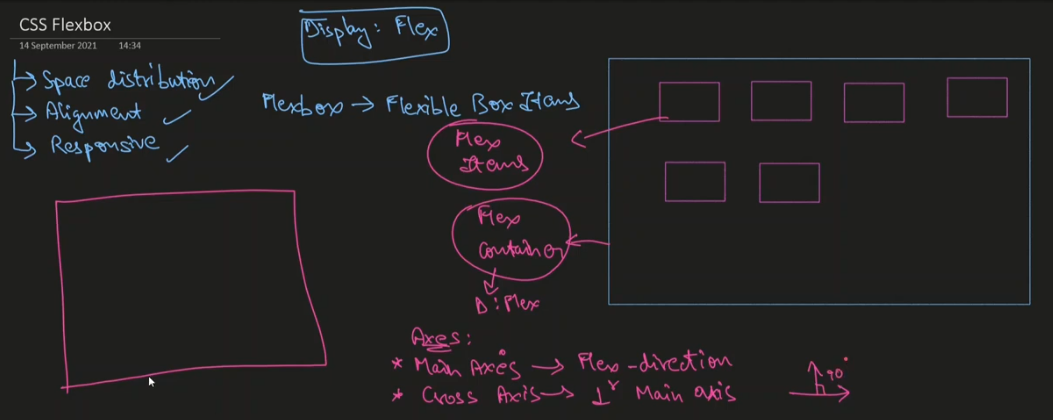 CSS Flexbox
14 September 2021 14:34
Display: Flex
Space distribution
Alignment
Responsive
Flexbox → Flexible Box Items
Flex
Items
Flex
Container
D: Flex
Axes:
* Main Axes → Flex-direction
* Cross Axis → ⊥r Main axis
90°